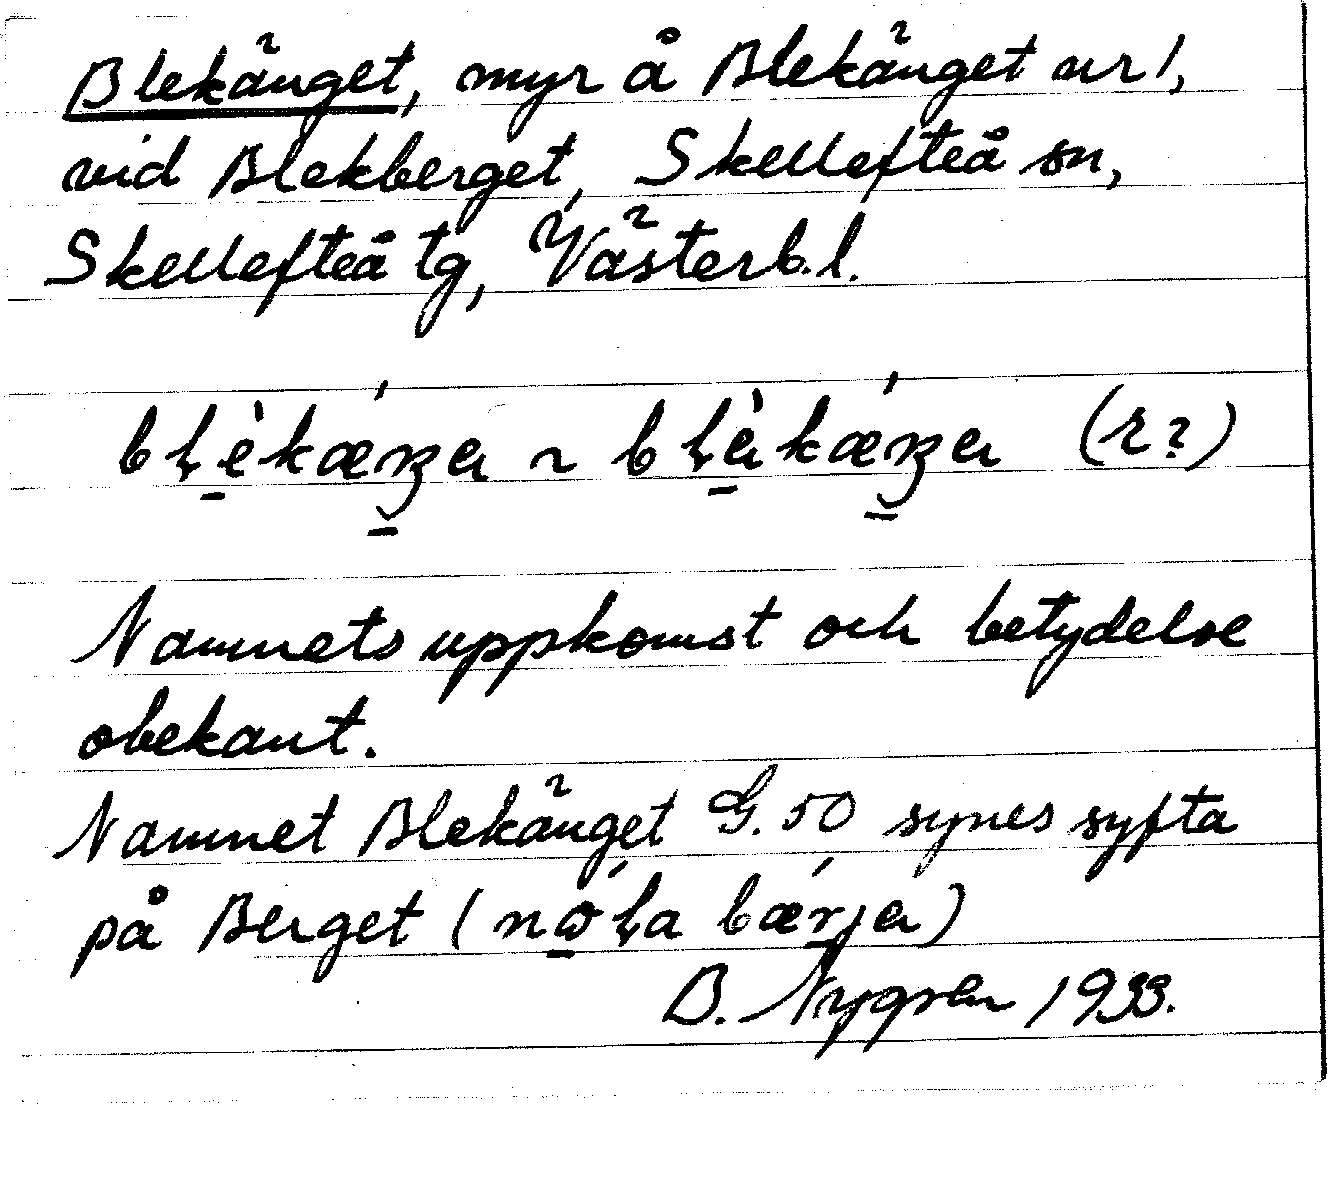 Blekänget, myr å Blekänget nr 1,
vid Blekberget, Skellefteå sn,
Skellefteå tg, Västerb.l.
Namnets uppkomst och betydelse
obekant.
Namnet Blekänget G.50 synes syfta
på Berget (
B. Nygren 1933.